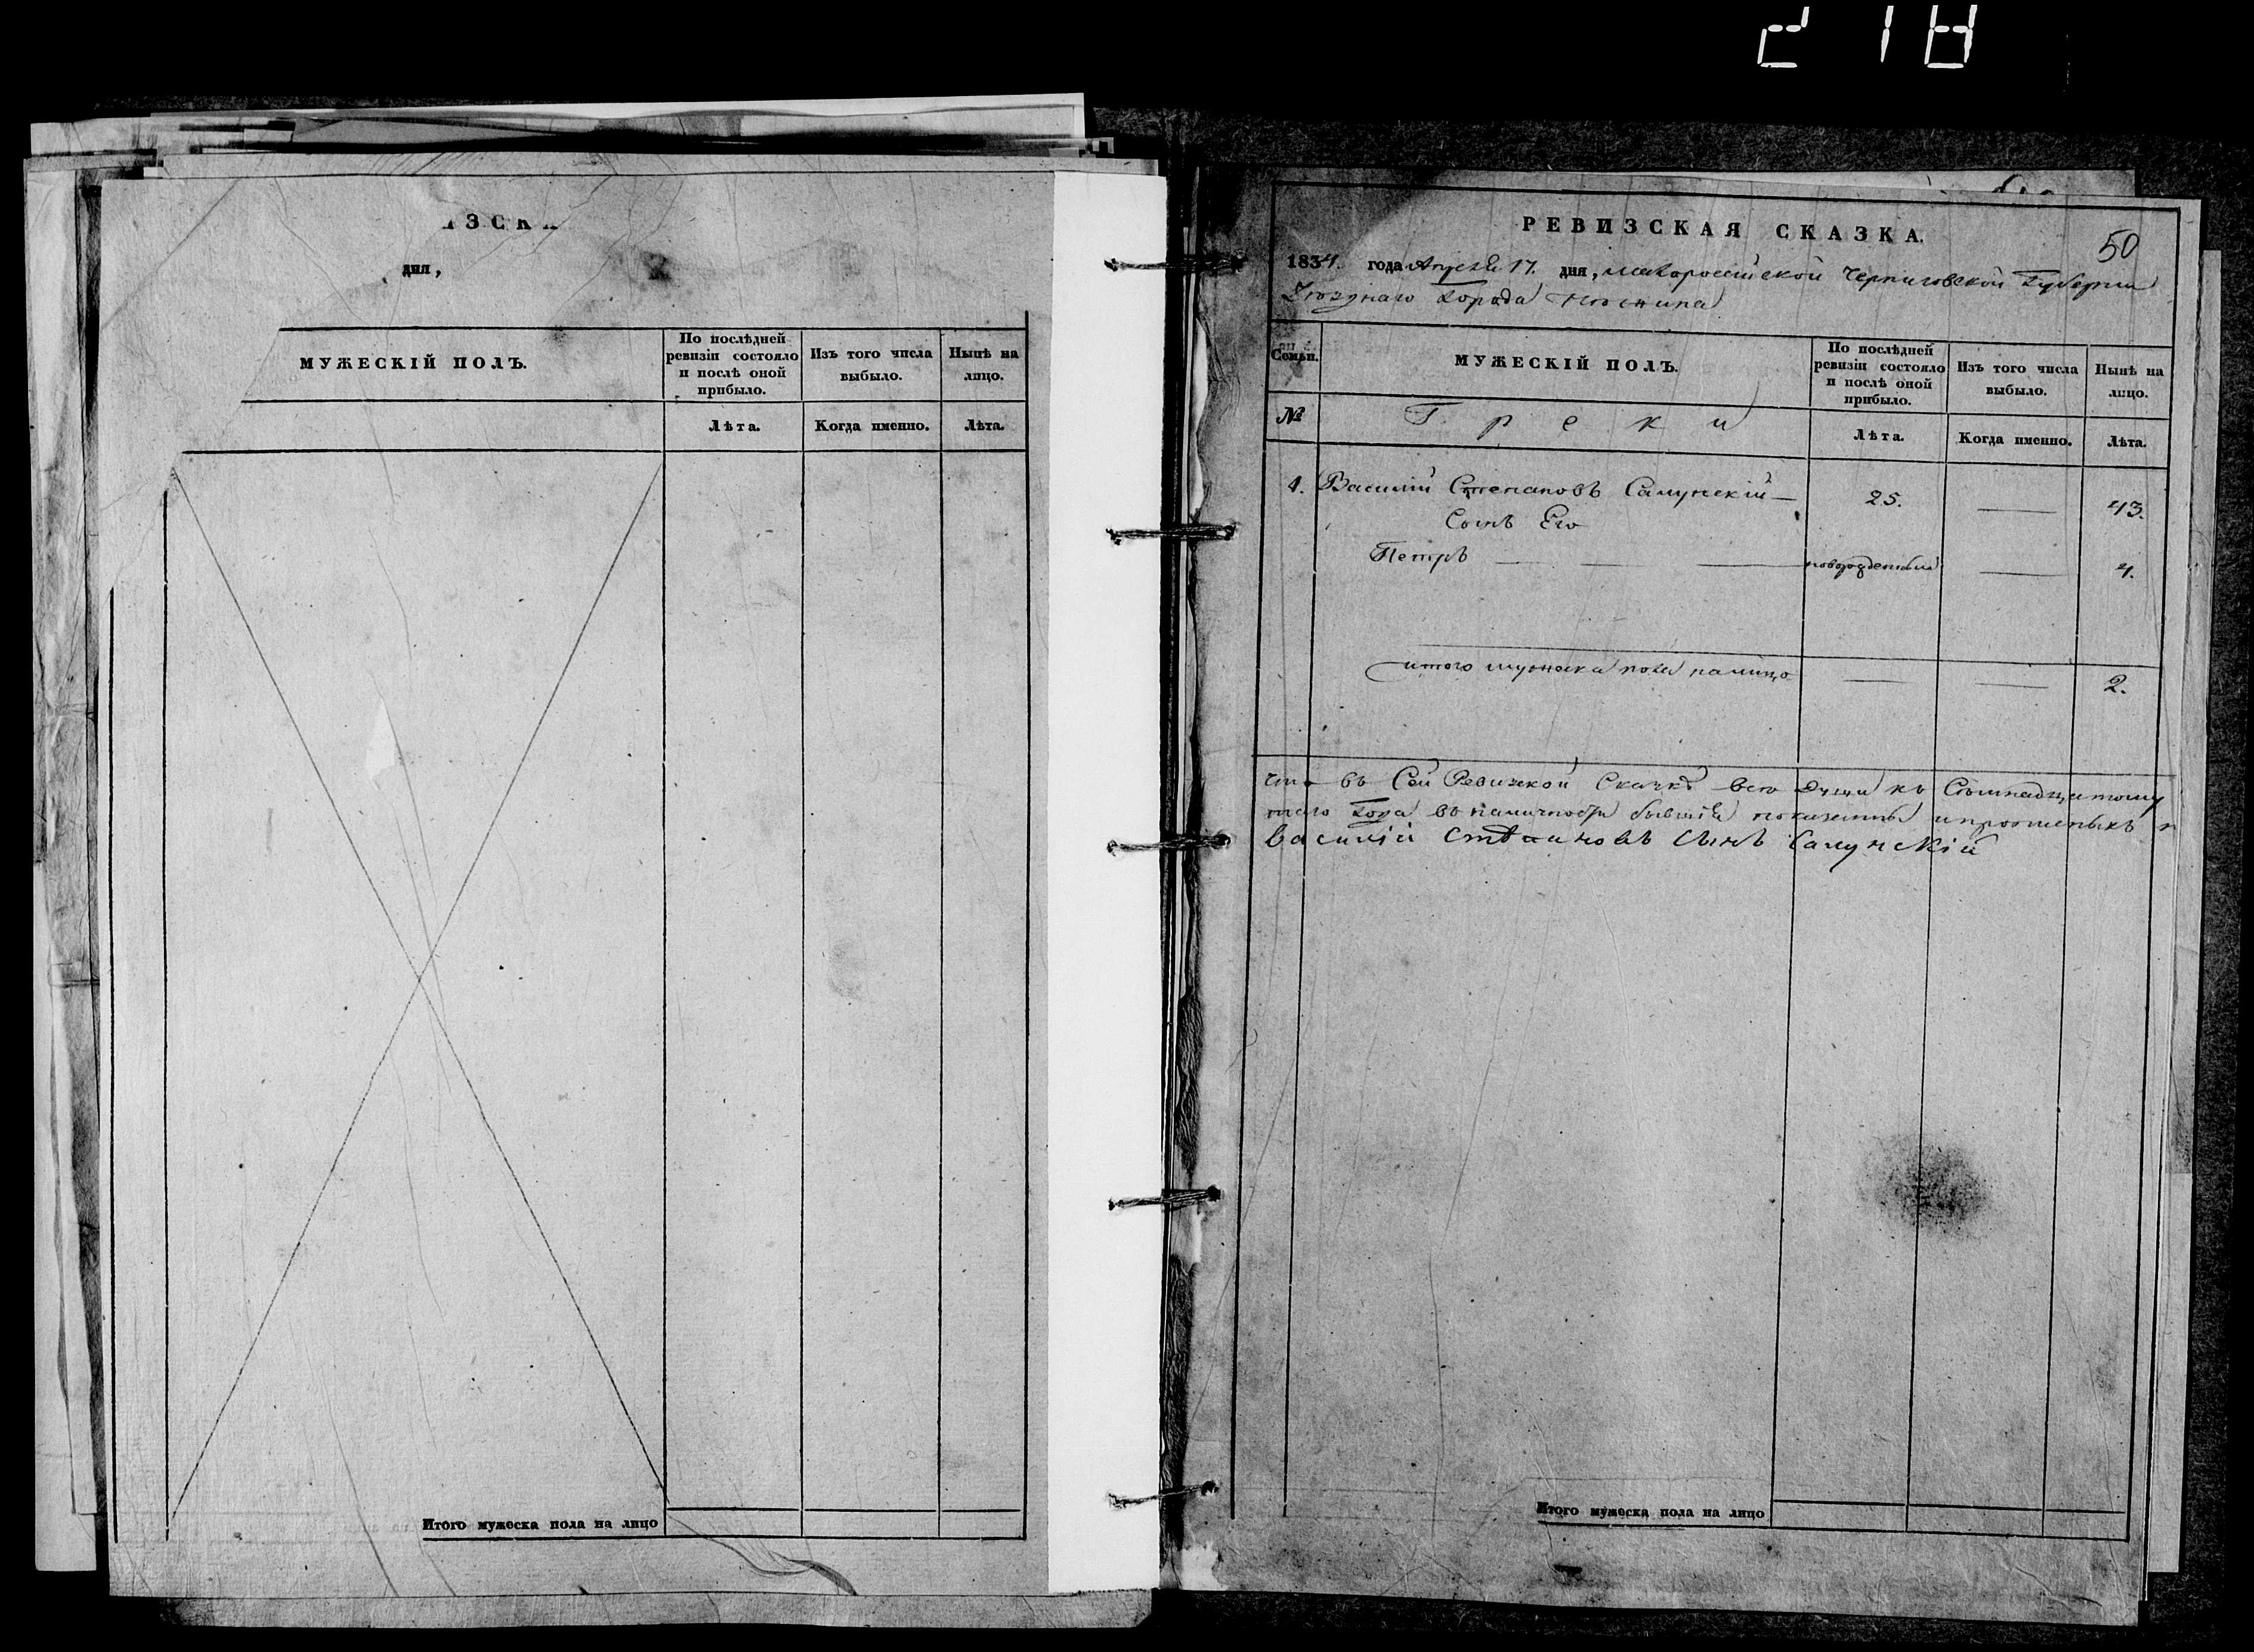 218
ИЗСКА
дня,
МУЖЕСКІЙ ПОЛЪ.
По послѣдней ревизіи состояло и послѣ оной прибыло.
Изъ того числа выбыло.
Нынѣ на лицо.
Лѣта.
Когда именно.
Лѣта.
Итого мужеска пола на лицо
РЕВИЗСКАЯ СКАЗКА.
50
1834. года Апреля 17. дня, Малороссійской Черниговской Губерніи
города Нѣжина
Семьи.
МУЖЕСКІЙ ПОЛЪ.
По послѣдней ревизіи состояло и послѣ оной прибыло.
Изъ того числа выбыло.
Нынѣ на лицо.
№
Греки
Лѣта.
Когда именно.
Лѣта.
1. Василій Степановъ 25. — 43.
Сынъ Его
Петръ — новорожденный — 4.
итого мужеска пола налицо — — 2.
что въ Сей Ревизской Сказкѣ всѣ души къ
года въ наличности бывшіе показаны
Василій сынъ
Итого мужеска пола на лицо